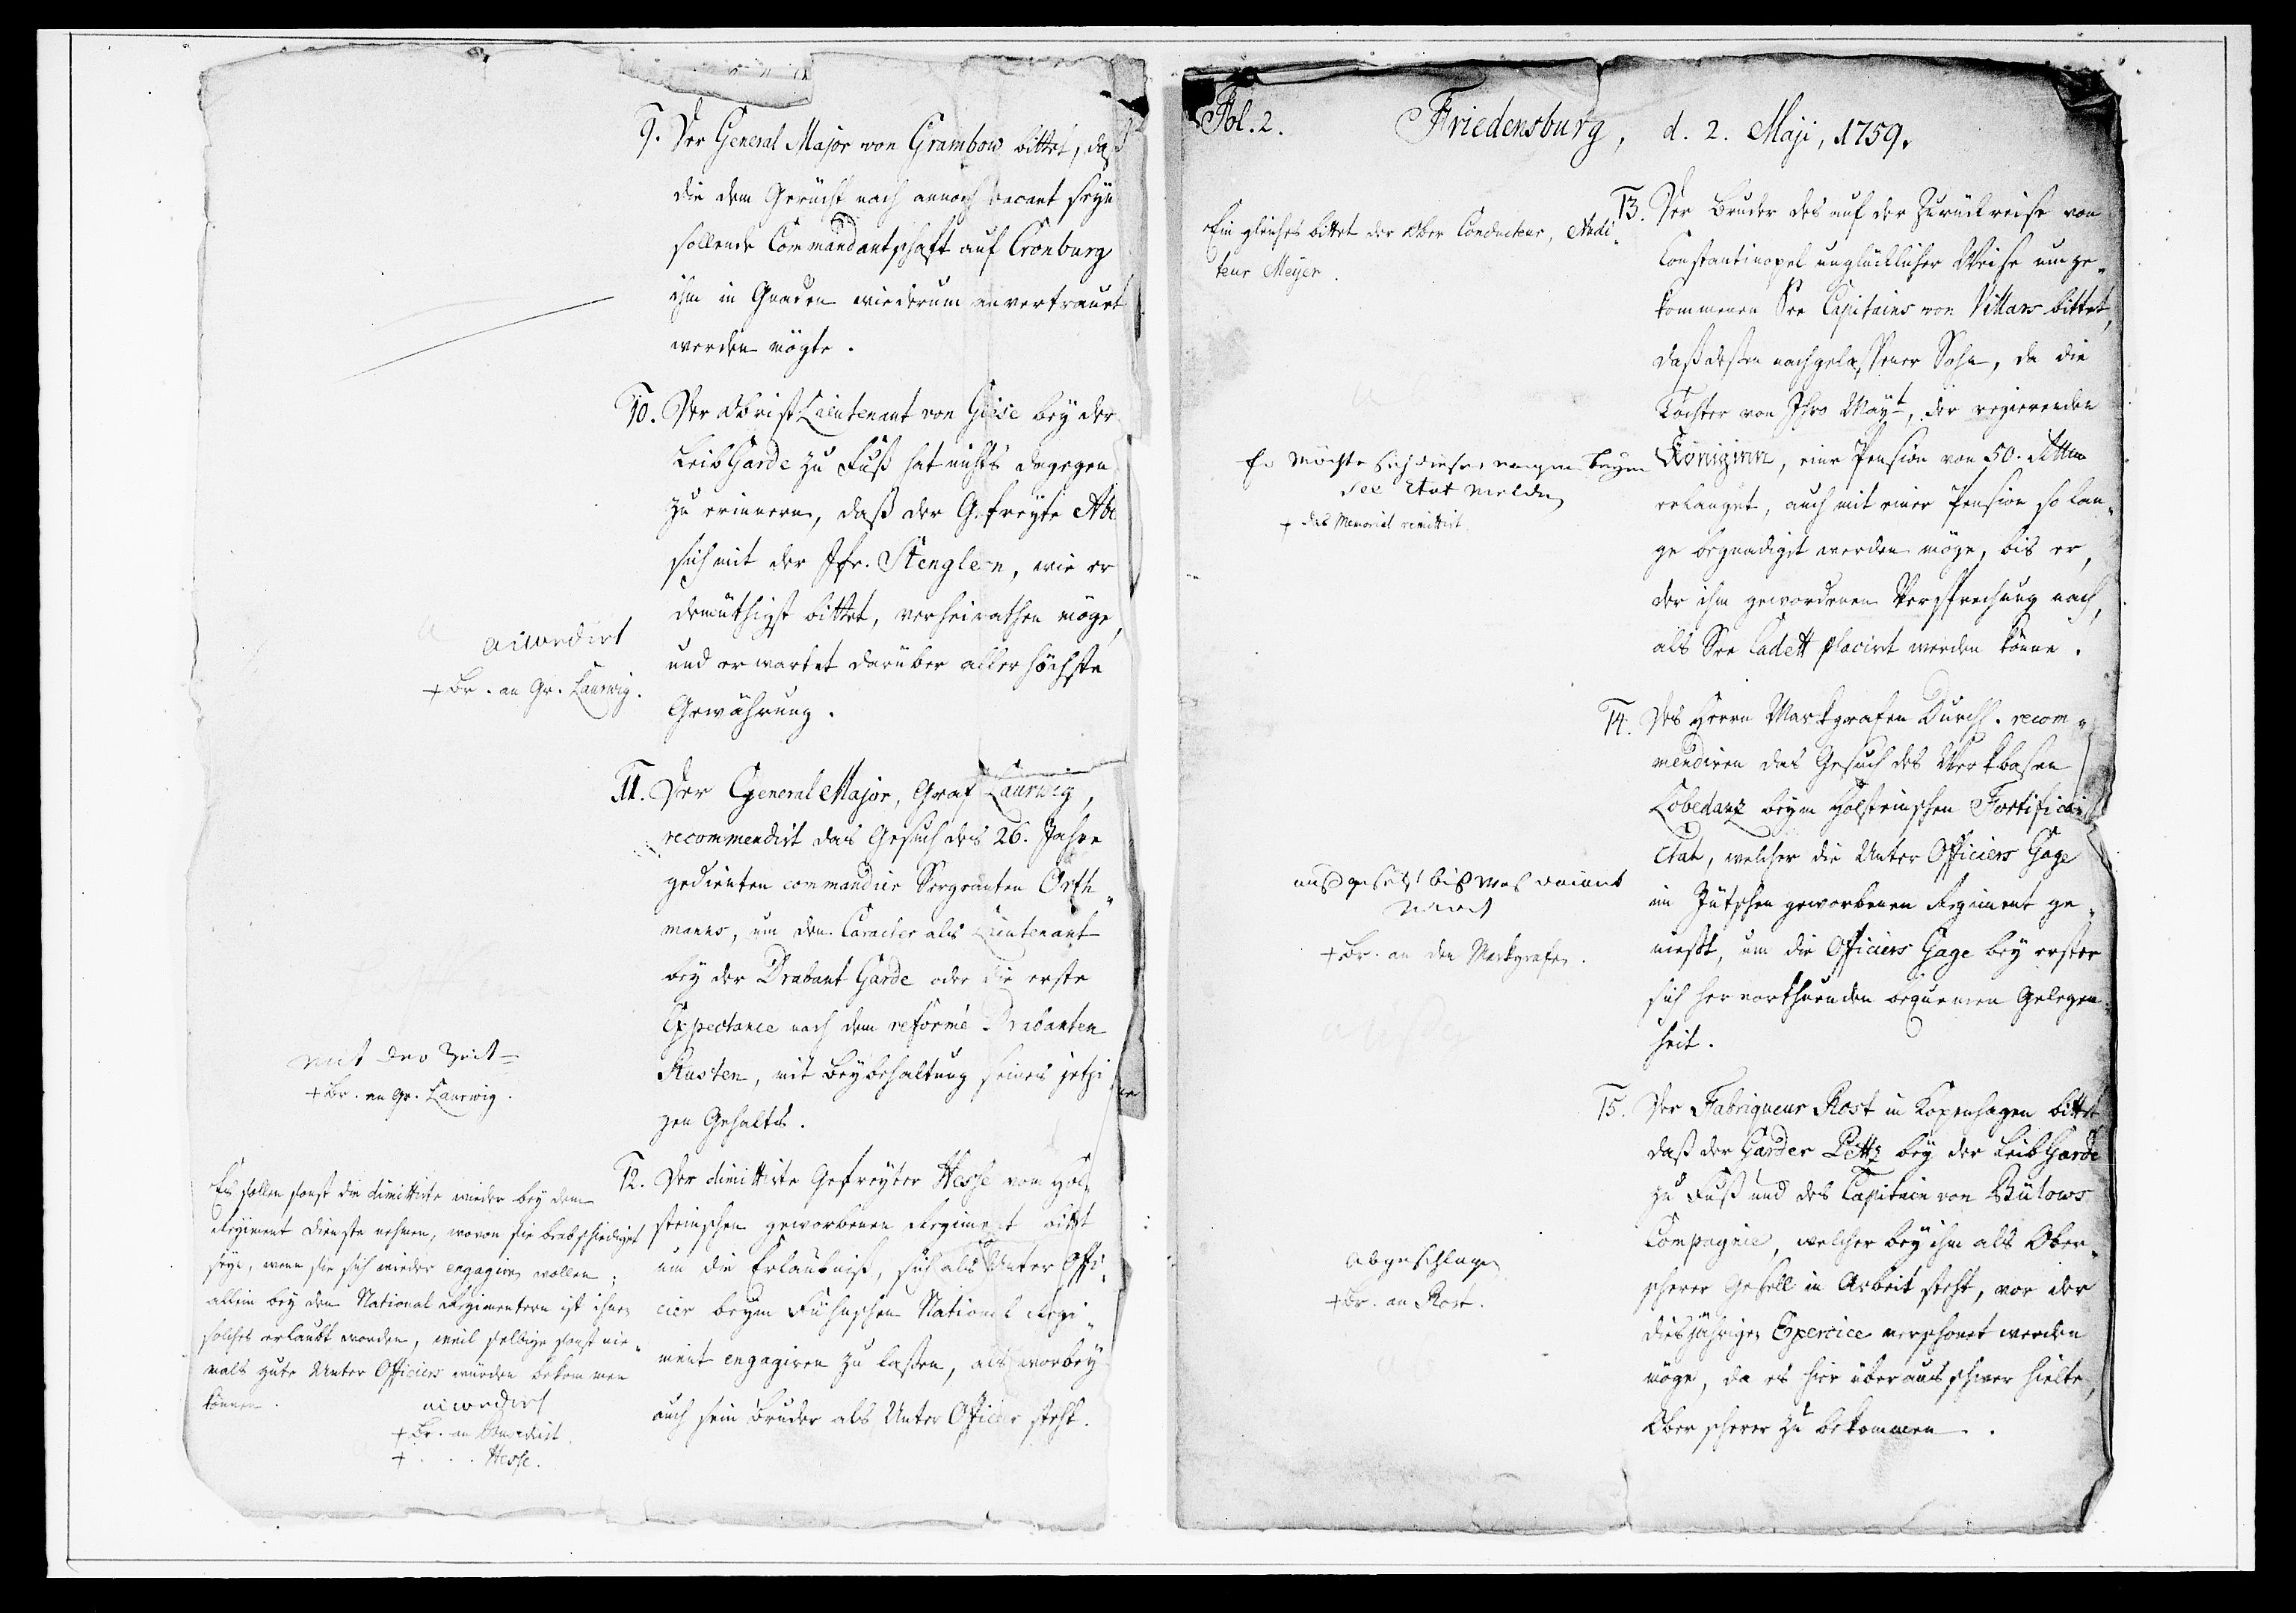 9. Der General Major von Grambow bittet, daß
die dem Gerücht nach annoch vacant seyn
sollende Commandantschaft auf Cronburg
ihm in Gnaden wiederum anvertrauet
werden mögte.
10. Der Obrist Lieutenant von Giese bey der
LeibGarde zu Fuß hat nichts dagegen
zu erinnern, daß der Gefreyte Abe
sich mit der Jfr. Stenglen, wie er
demüthigst bittet, verheirathen möge,
und erwartet darüber allerhöchste
Gewährung.
accordirt
+ Br. an Gr. Laurwig.
11. Der General Major, Graf Laurwig,
recommendirt das Gesuch des 26. Jahre
gedienten commandier Sergeanten Orth„
manns, um den Caracter als Lieutenant
bey der Drabant Garde oder die erste
Expectance nach dem reformé Drabanten
Rusten, mit Beybehaltung seines jetzi„
gen Gehalts.
mit der Zeit
+ Br. an Gr. Laurwig.
12. Der dimittirte Gefreyter Hesse vom Hol„
steinschen geworbenen Regiment bittet
um die Erlaubniß, sich als Unter Offi„
cier beym Fühnschen National Regi„
ment engagiren zu laßen, als worbey
auch sein Bruder als Unter Officier steht.
Es sollen sonst die dimittirte wieder bey dem
Regiment Dienste nehmen, wovon sie verabschiediget
seyn, wenn sie sich wieder engagiren wollen;
allein bey den National Regimentern ist ihnen
solches erlaubt worden, weil selbige sonst nie„
mals gute Unter Officiers würden bekommen
können.
accordirt
+ Br. an
+ . . . Hesse.
Fol. 2. Friedensburg, d. 2. Maji, 1759.
13. Der Bruder des auf der Zurückreise von
Constantinopel unglücklicher Weise umge„
kommenen See Capitains von Villars bittet,
daß deßen nachgelaßener Sohn, da die
Tochter von Ihro Mayt, der regierenden
Königinn, eine Pension von 50. Rthlr
erlanget, auch mit einer Pension so lan„
ge begnadigt werden möge, bis er,
der ihm gewordenen Versprechung nach,
als See Cadett placirt werden könne.
Ein gleiches bittet der Ober Conducteur, Audi„
teur Meyer.
Er möchte sich dieserwegen beym
See Etat melden
+ das Memorial remittirt.
14. Des Herrn Markgrafen Durchl. recom„
mendiren das Gesuch des Werkbasen
Lobedanz beym Holsteinschen Fortification
Etat, welcher die Unter Officiers Gage
im Jütschen geworbenen Regiment ge„
nießt, um die Officiers Gage bey erster
sich hervorthuenden bequemen Gelegen„
heit.
ausgesetzt biß was vacant
wird
+ Br. an den Markgrafen.
15. Der Fabriqueur Rost in Kopenhagen bittet
daß der Garder Lettz bey der LeibGarde
zu Fuß und des Capitain von Bülows
Compagnie, welcher bey ihm als Ober„
scherer Gesell in Arbeit steht, vor der
diesjährigen Exercice verschonet werden
möge, da es hier überaus schwer hielte,
Oberscherer zu bekommen.
abgeschlagen
+ Br. an Rost.